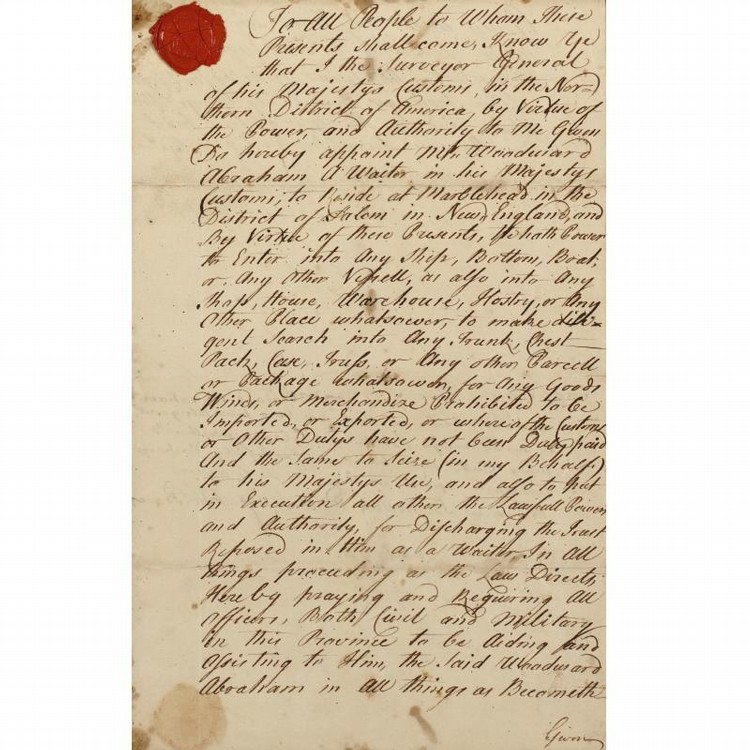 To All People to Whom These
Presents shall come, Know Ye
that I the Surveyor General
of his Majestys Customs, in the Nor=
thern District of America, by Virtue of
the Power, and Authority to Me Given
Do hereby appoint Mr. Woodward
Abraham A Waiter in his Majestys
Customs, to Reside at Marblehead in the
District of Salem in New England, and
By Virtue of these Presents, He hath Power
to Enter into Any Ship, Bottom, Boat,
or, Any Other Vessell, as also into Any
Shop, House, Warehouse, Hostry, or Any
Other Place whatsoever, to make dili=
gent Search into Any Trunk, Chest
Pack, Case, Truss, or Any other Parcell
or Package whatsoever, for Any Goods
Wines, or Merchandize Prohibited to be
Imported, or Exported, or where of the Customs
or Other Dutys have not been Duly paid
And the Same to Seize (in my Behalf)
to his Majestys Use, and also to put
in Execution all other the Lawfull Powers
and Authority, for Discharging the Trust
Reposed in Him as a Waiter, In All
things proceeding as the Law Directs,
Hereby praying and Requiring All
Officers, Both Civil and Military
in this Province to be Aiding and
Assisting to Him, the Said Woodward
Abraham in All things as Becometh
Given